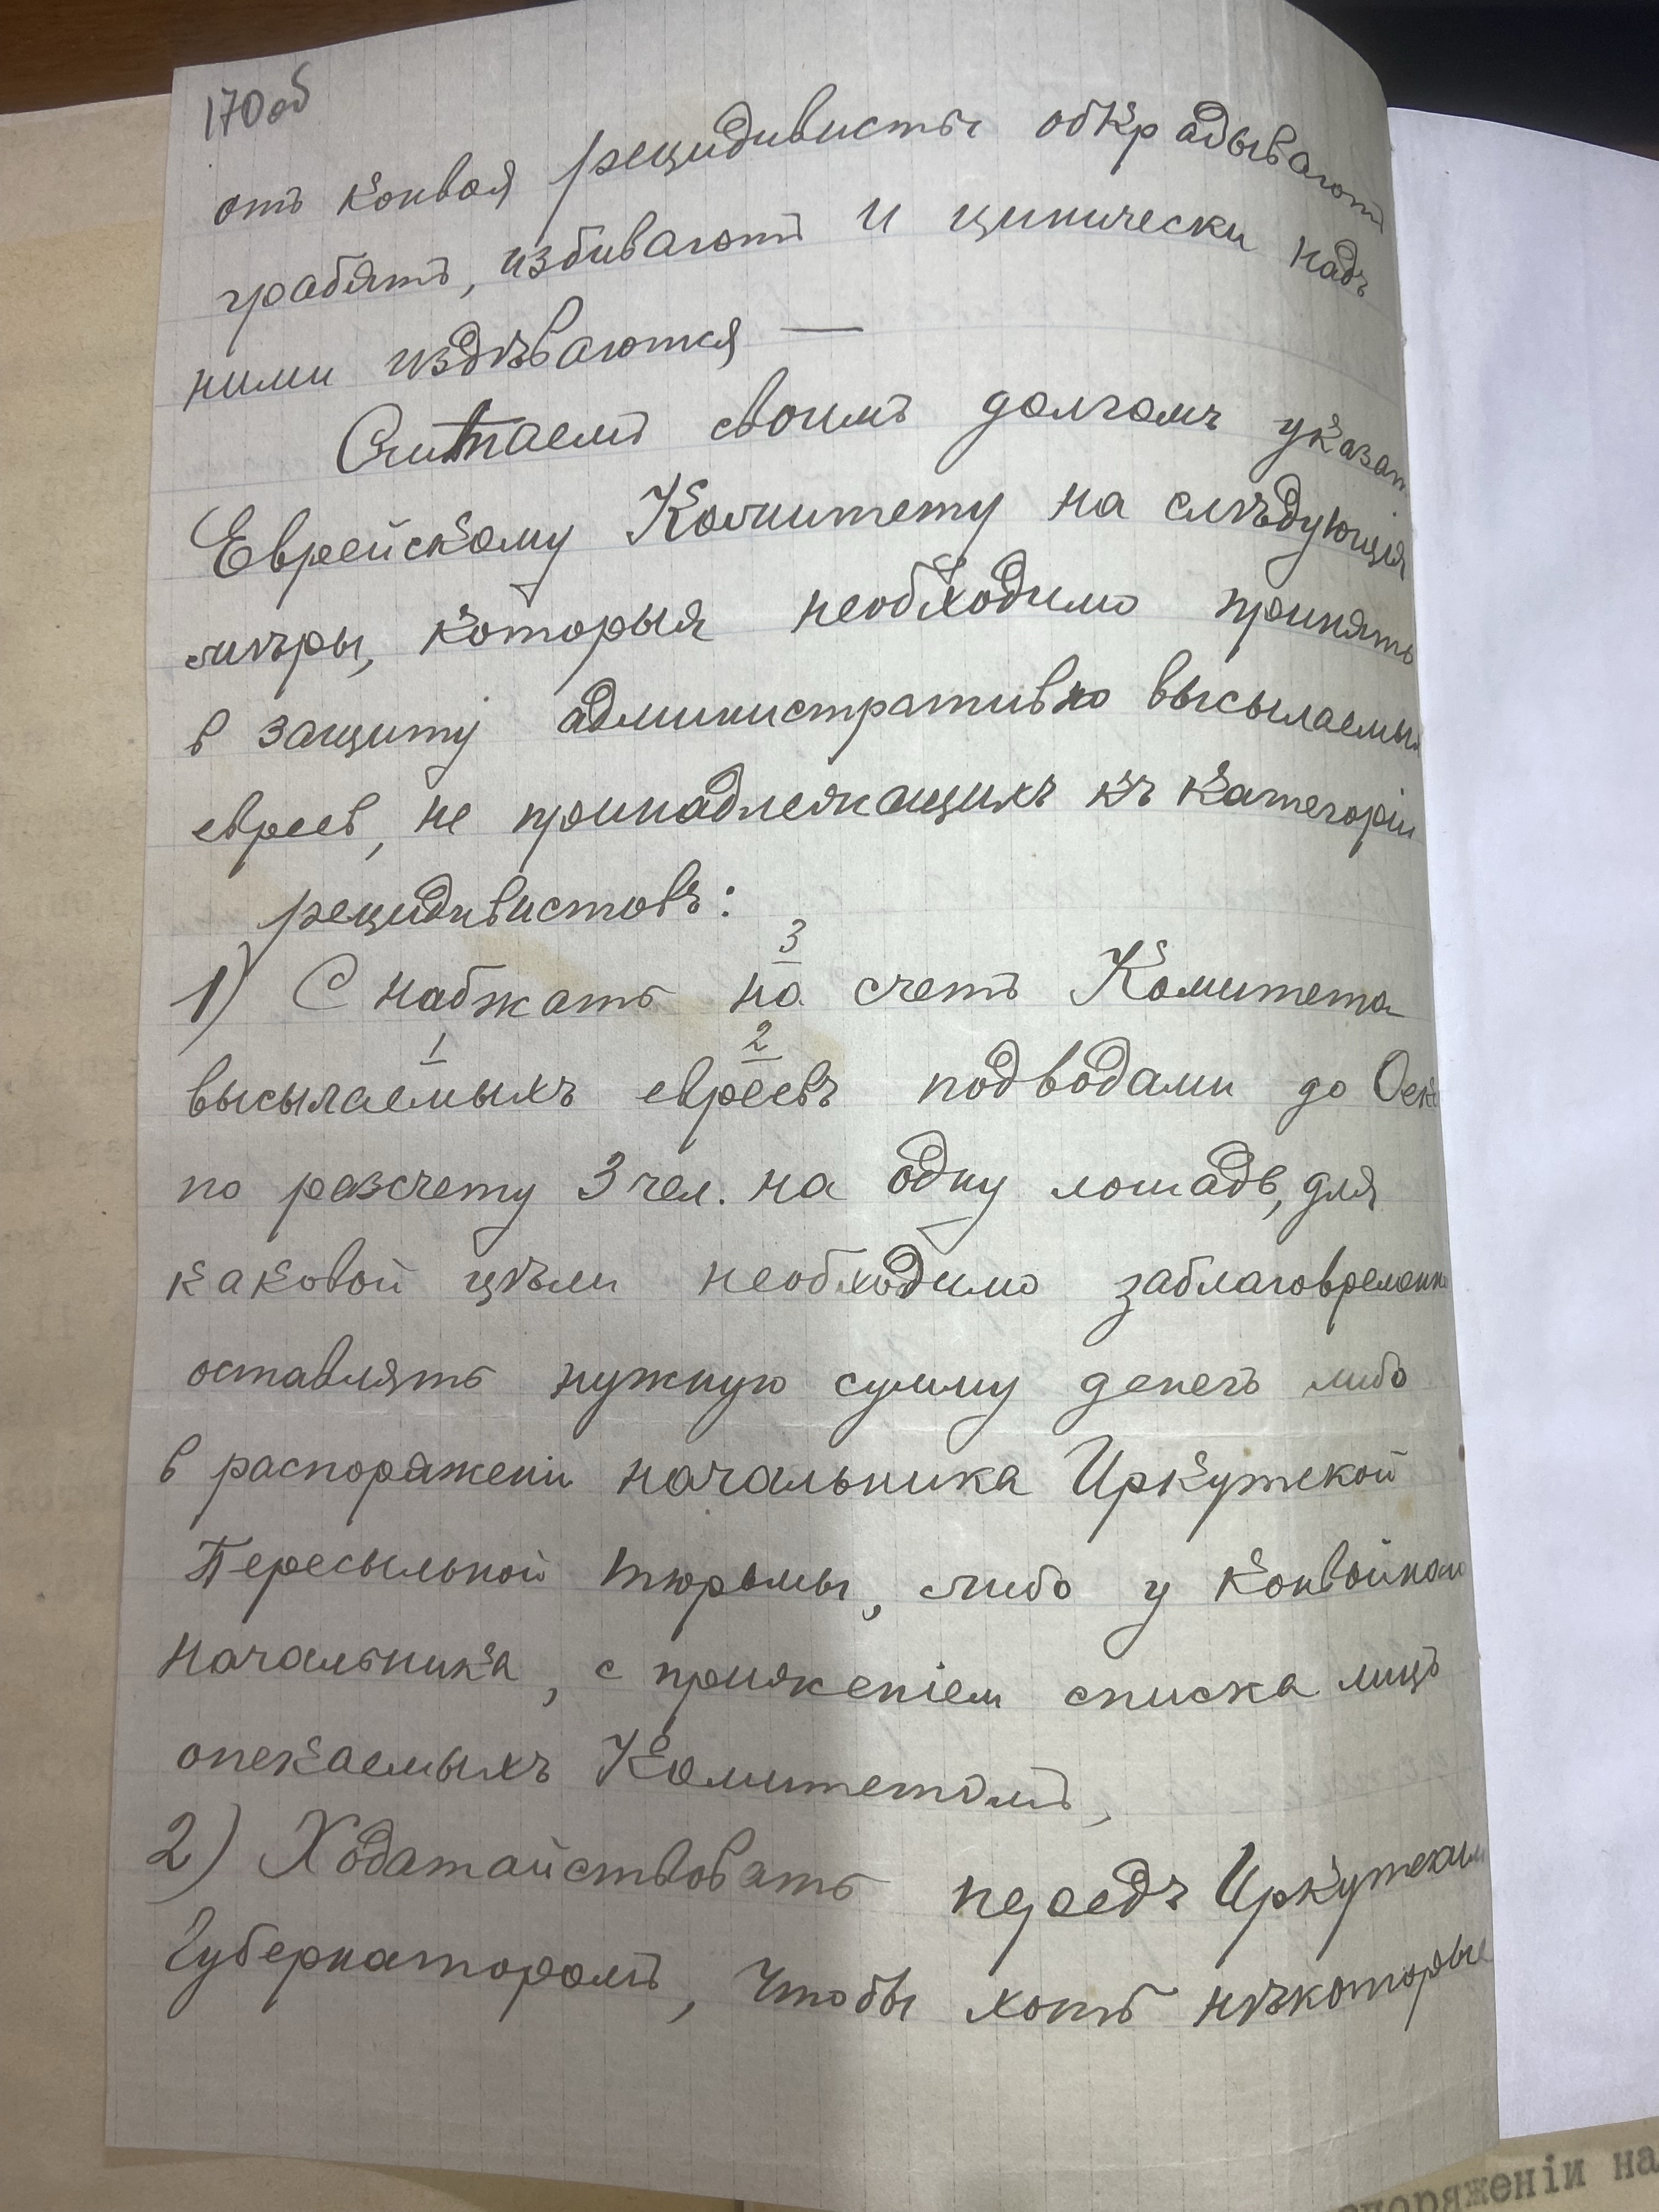 170об
отъ конвоя рецидивисты обкрадываютъ
грабятъ, избиваютъ и цинически надъ
ними издѣваются —
Считаемъ своимъ долгомъ указат
Еврейскому Комитету на слѣдующія
мѣры, которыя необходимо принять
в защиту административно высылаемых
евреев, не принадлежащихъ къ категоріи
рецидивистовъ:
3
1) Снабжать на счетъ Комитета
1 2
высылаемыхъ евреевъ подводами до Оек
по разсчету 3 чел. на одну лошадь, для
каковой цѣли необходимо заблаговременно
оставлять нужную сумму денегъ либо
в распоряженіи начальника Иркутской
Пересыльной тюрьмы, либо у конвойнаго
начальника, с приложеніем списка лицъ
опекаемыхъ Комитетомъ,
2) Ходатайствовать передъ Иркутским
Губернаторомъ, чтобы хоть нѣкоторые
споряженіи на